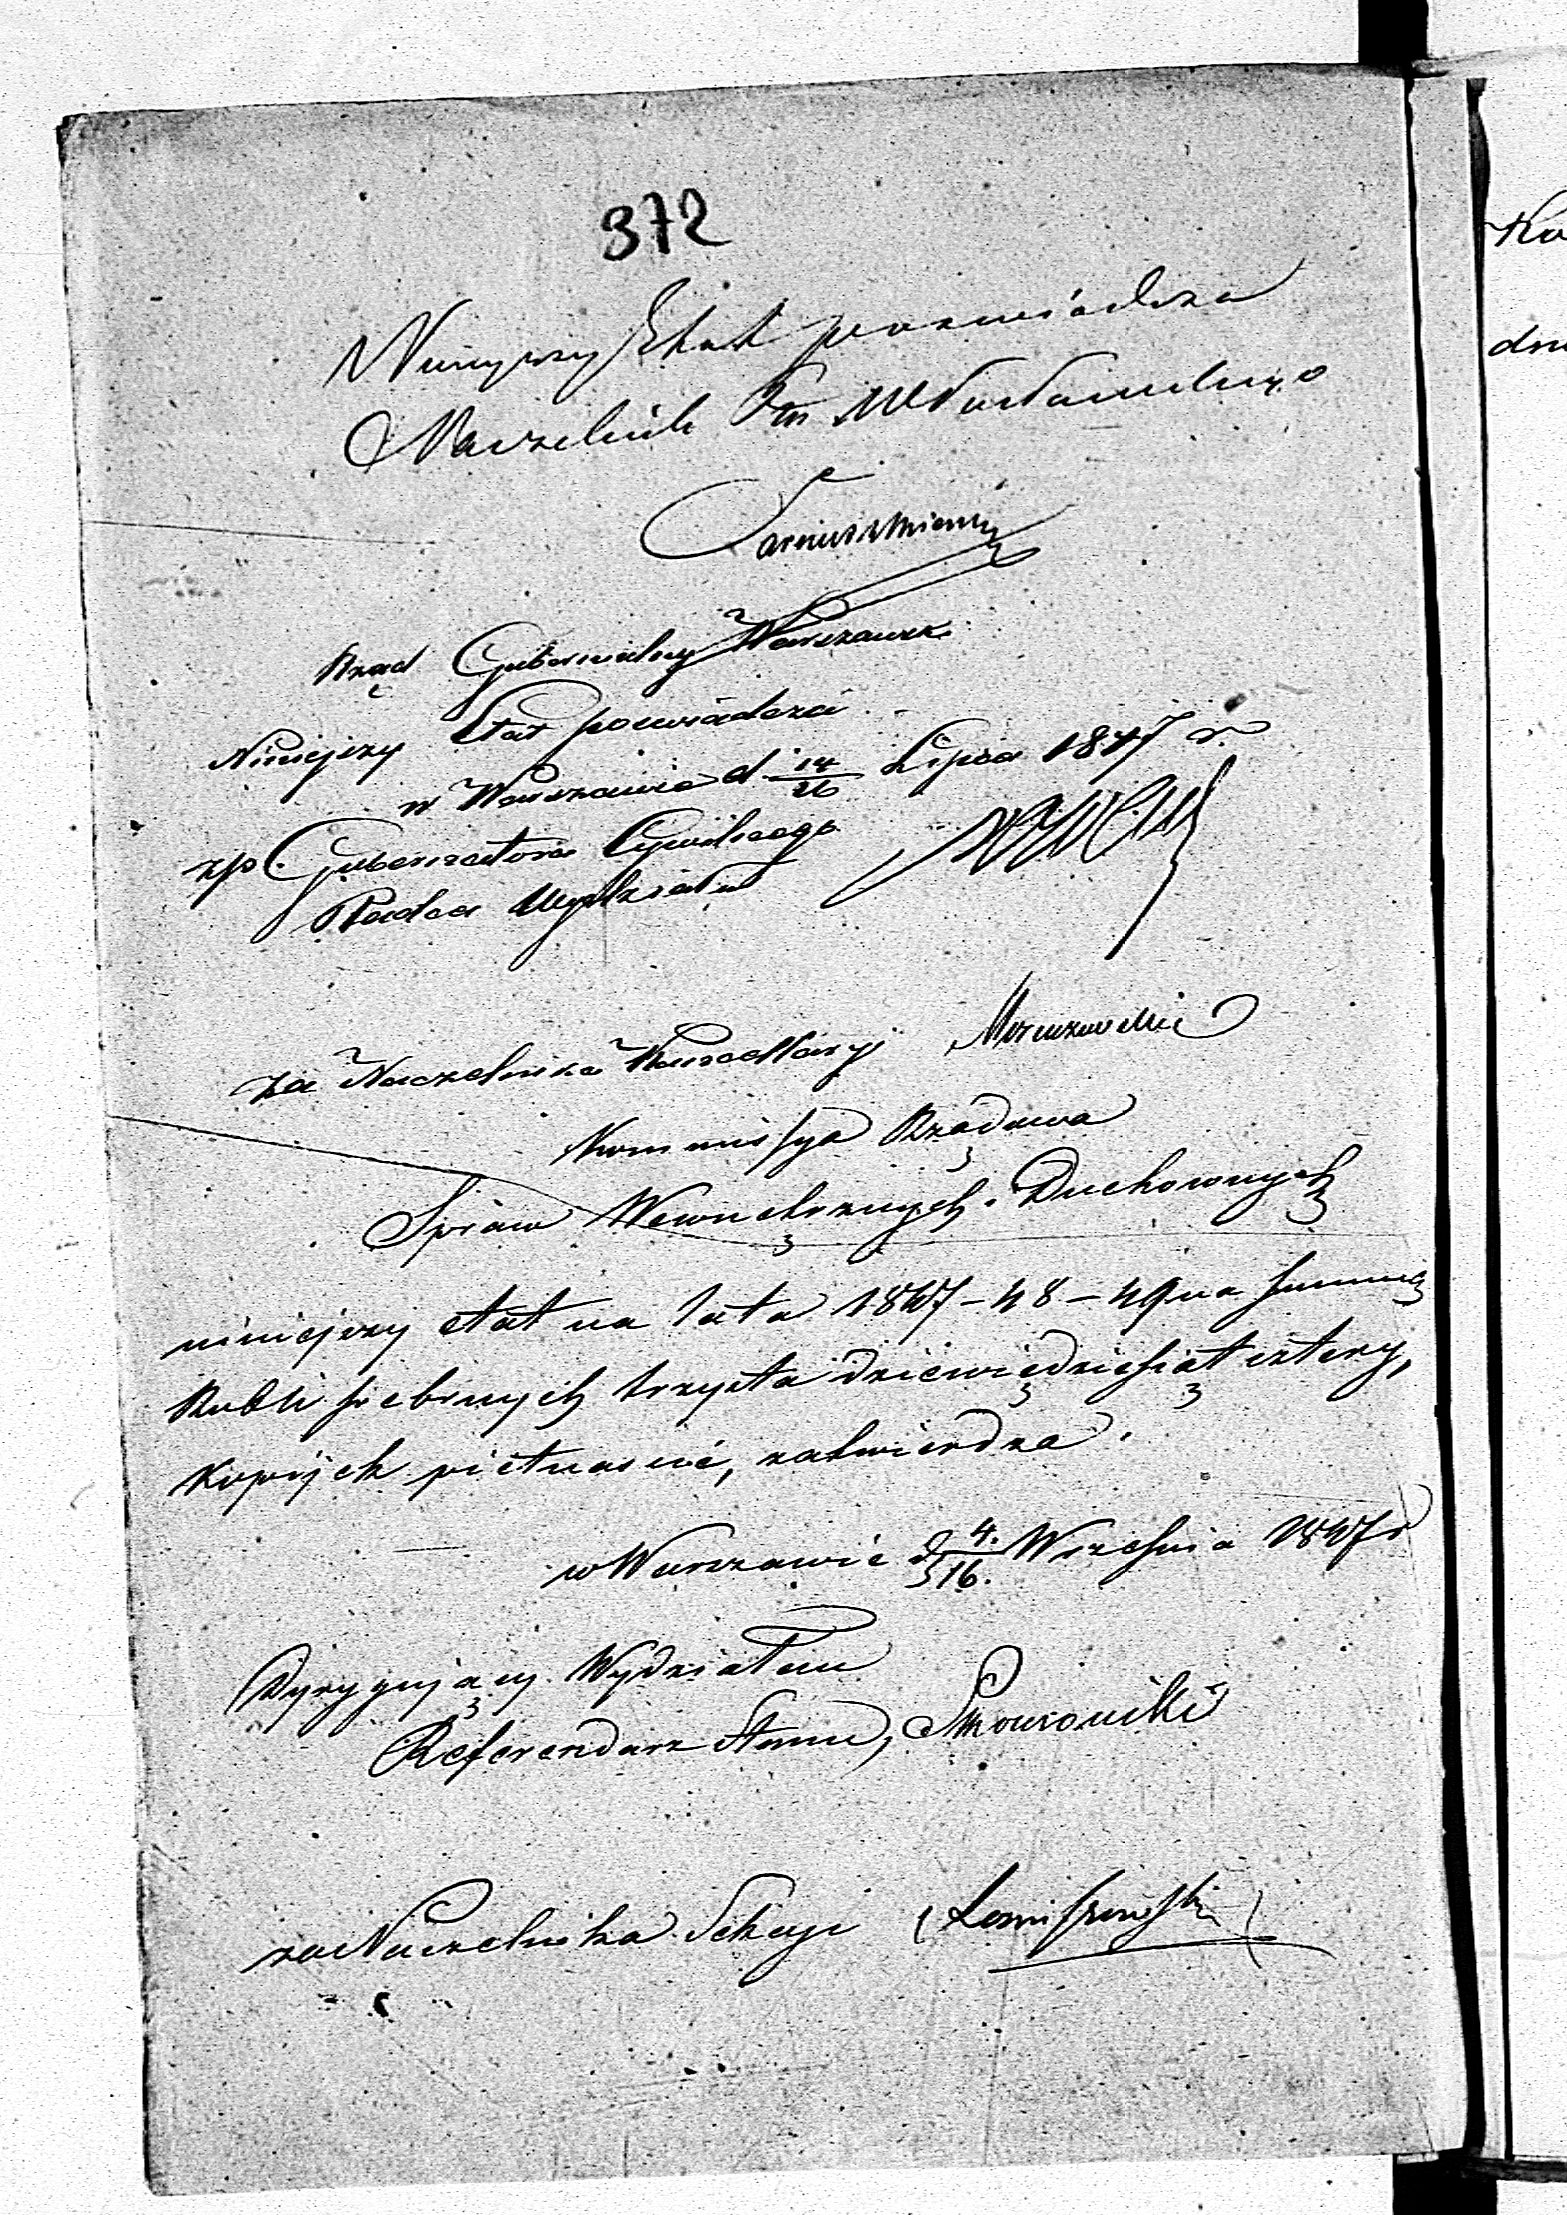 372
Niniejszy Etat poswiadcza
Naczelnik
Rząd Gubernialny Warszawski
Niniejszy Etat poswiadcza
w Warszawie d 14/26 Lipca 1847 r.
zp. Gubernatora Cywilnego
Radca Wydziału
za Naczelnika Kancellaryi
Kommissya Rządowa
Spraw Wewnętrznych i Duchownych
niniejszy etat na lata 1847–48–49 na summę
Rubli srebrnych trzysta dziewiędziesiąt cztery,
Kopijek pietnascie, zatwierdza.
w Warszawie d 4./16. Września 1847 r
Dyrygujący Wydziałem
Referendarz Stanu,
za Naczelnika Sekcyi
Ko
dni